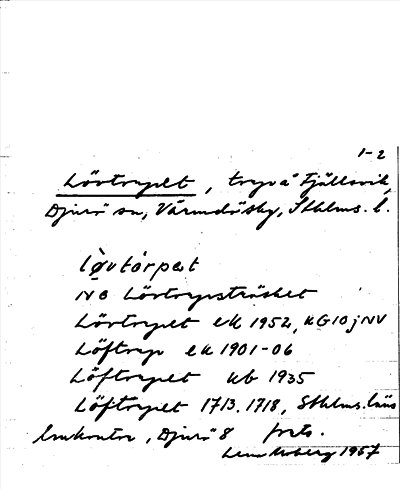 1-2
Lövtorpet, torp u Fjällsvik,
Djurö sn, Värmdö skg, Sthlms. l.
lø̀vtórpət
NB Lövtorpsträsket
Lövtorpet ek 1952, KG 10 j NV
Löftorp ek 1901-06
Löftorpet kb 1935
Löftorpet 1713, 1718, Sthlms. läns
lmkontor, Djurö 8 forts.
Moberg 1957